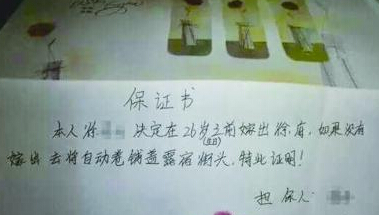 保证书
本人徐 决定在26岁之前嫁出徐府,如果没有
(生日)
嫁出去将自动卷铺盖露宿街头,特此证明!
担保人: